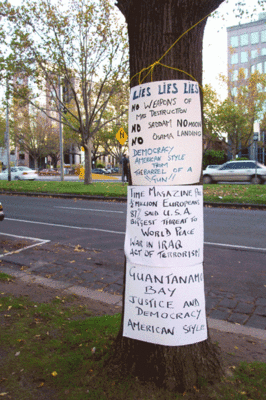 LIES LIES LIES
NO WEAPONS OF
MASS DESTRUCTION
NO SADDAM NO MOON
NO OSAMA LANDING
DEMOCRACY
AMERICAN STYLE
FROM
THE BARREL OF A
GUN!!
TIME MAGAZINE POLL
MILLION EUROPEANS
87% SAID U.S.A.
BIGGEST THREAT TO
WORLD PEACE
WAR IN IRAQ
ACT OF TERRORISM
GUANTANAMO
BAY
JUSTICE AND
DEMOCRACY
AMERICAN STYLE